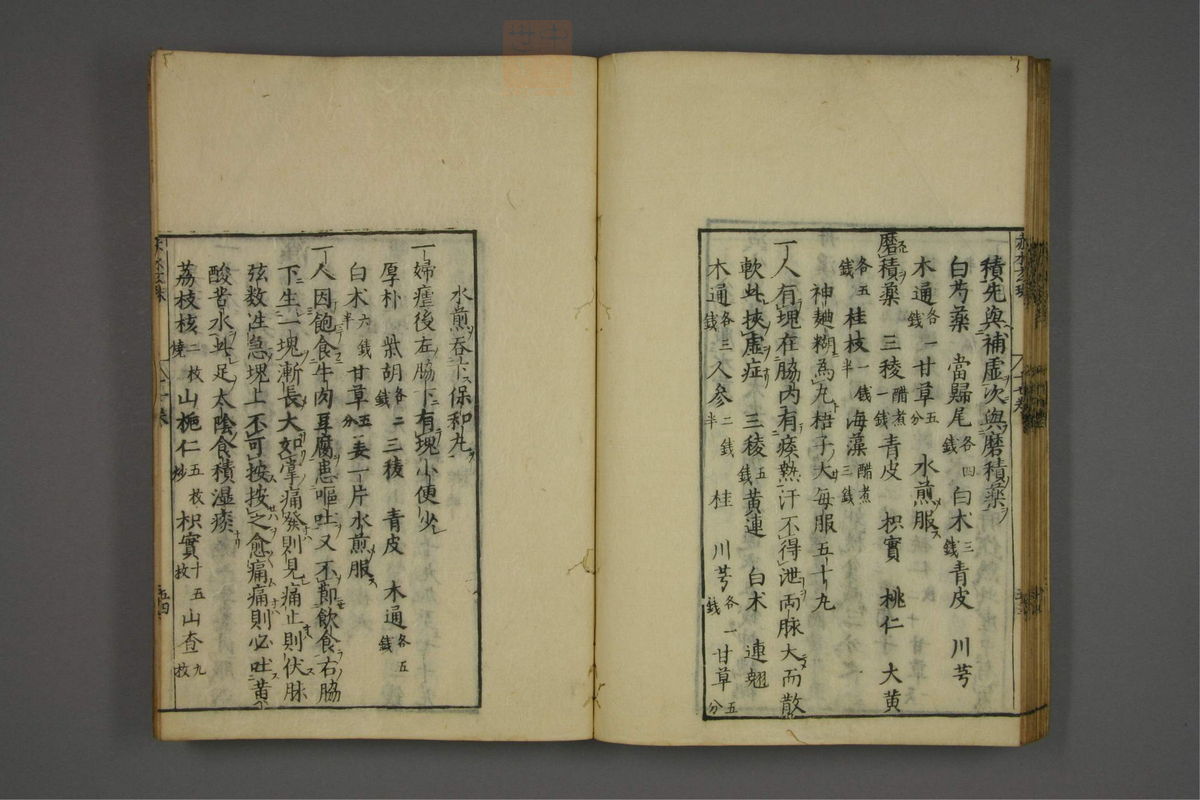 積先與補虚次與磨積藥
白芍藥　當歸尾各四錢　白术三錢　青皮　川芎
木通各一錢　甘草五分　水煎服
磨積藥　三稜醋煮一錢　青皮　枳實　桃仁　大黄
各五錢　桂枝一錢　海藻醋煮三錢
神麯糊為丸梧子大每服五十丸
一人有塊在脇内有痰熱汗不得泄両脉大而散
軟此挾虚症　三稜五錢　黄連　白术　連翹
木通各三錢　人參二錢半　桂　川芎各一錢　甘草五分
水煎吞下保和丸
一婦瘧後左脇下有塊小便少
厚朴　柴胡各二錢　三稜　青皮　木通各五錢
白术六錢半　甘草五分　姜一片水煎服
一人因飽食牛肉豆腐患嘔吐又不節飲食右脇
下生一塊漸長大如掌痛發則見痛止則伏脉
弦数性急塊上不可按按之愈痛痛則必吐黄
酸苦水此足太陰食積湿痰
荔枝核二枚燒　山梔仁五枚炒　枳實十五枚　山查九枚